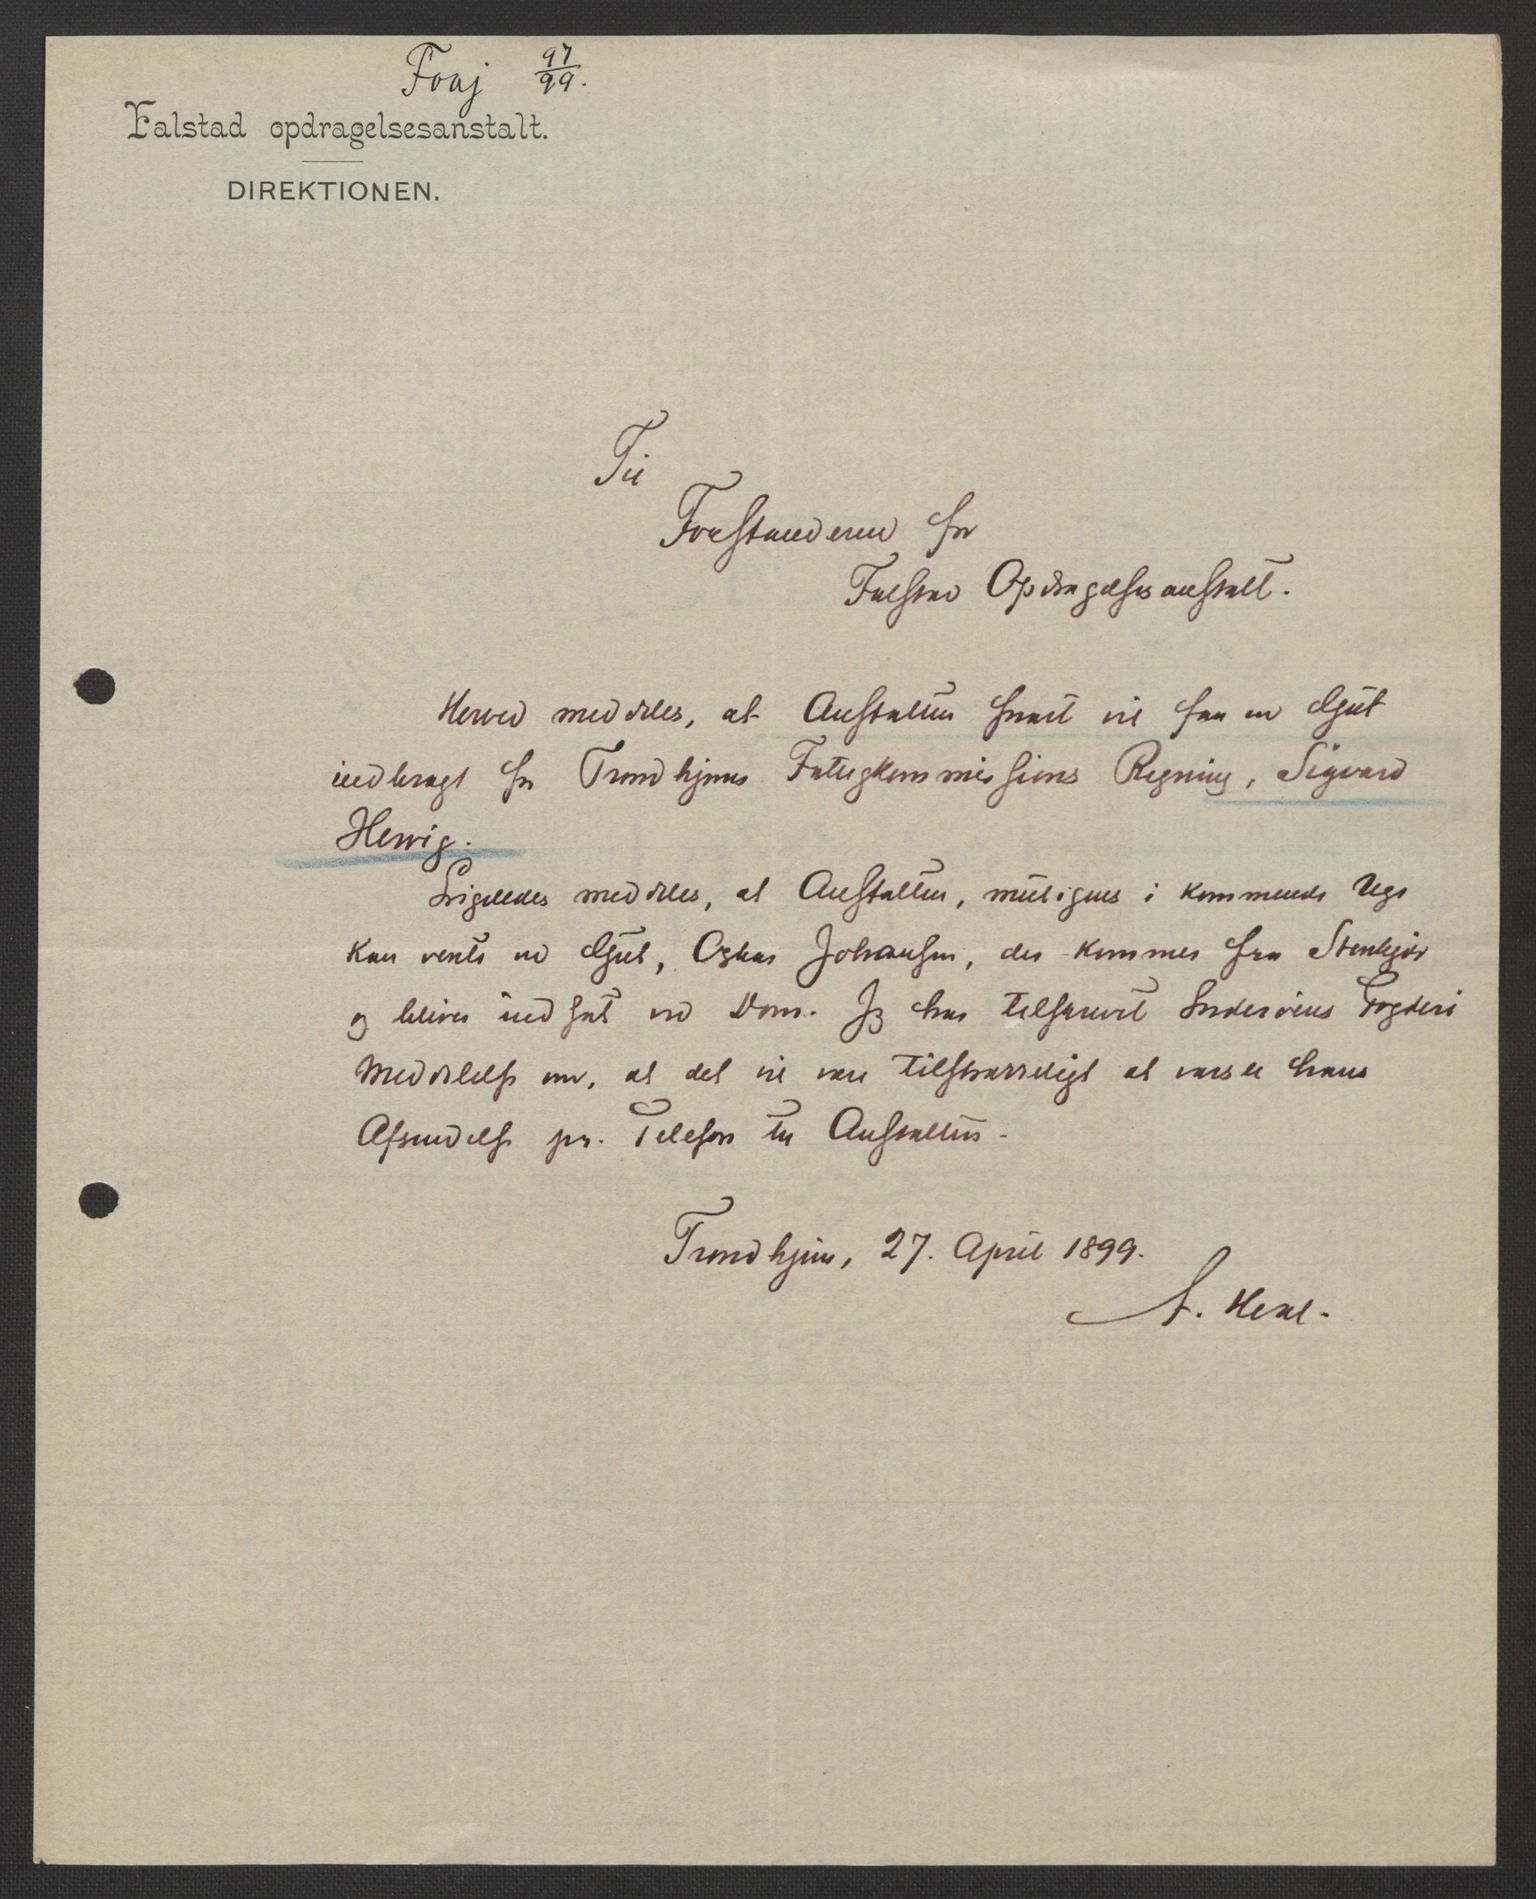 97
99.
Falstad opdragelsesanstalt.
DIREKTIONEN.
Til
Forstanderen for
Falstad Opdragelsesanstalt.
Herved meddeles, at Anstalten snart vil faa en Gut
indbragt for Trondhjems Fattigkommissions Regning, Sigvard
Herrig.
Ligeledes meddeles, at Anstalten, muligens i kommende Uge
kan vente en Gut, Oskar Johansen, der kommer fra Stenkjær
og bliver indsat ved Dom. Jeg har tilskrevet Inderøens Fogderi
Meddelelse om, at det vil være tilstrækkeligt at varsle hans
Afsendelse pr. Telefon til Anstalten.
Trondhjem, 27. April 1899.